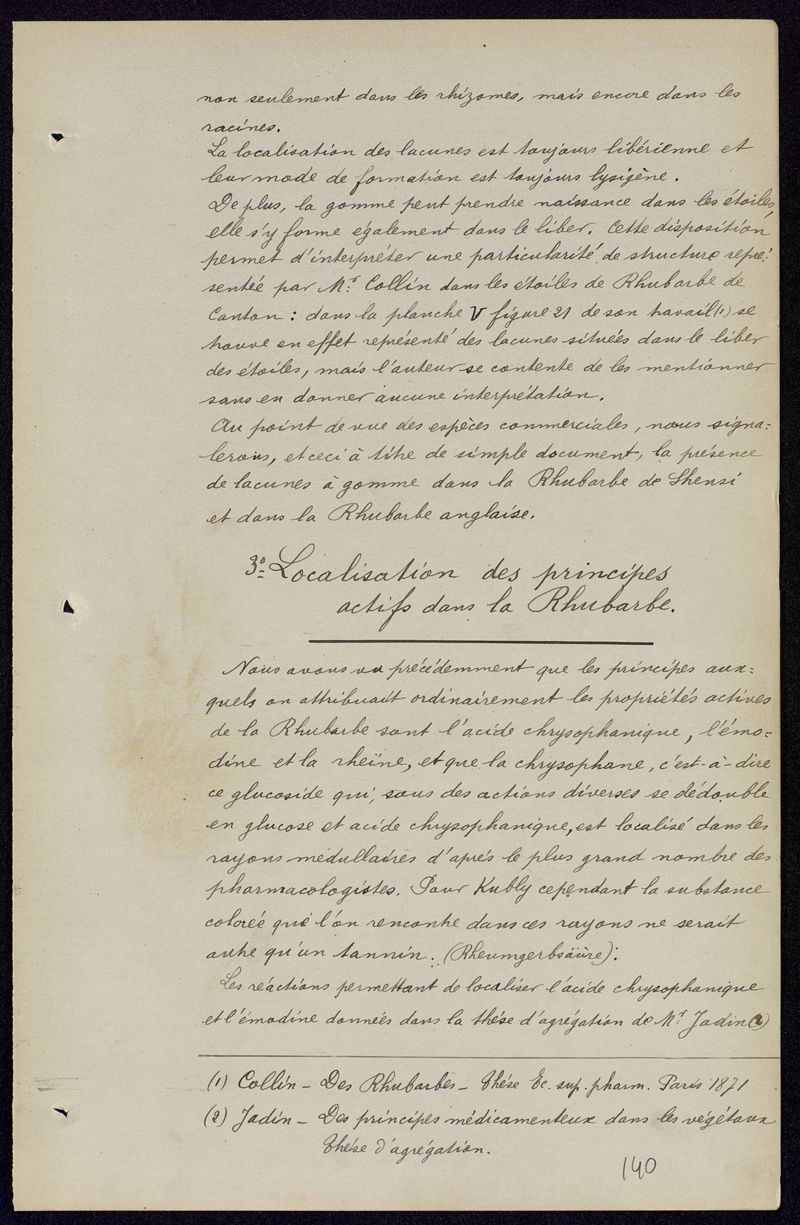 non seulement dans les rhizomes, mais encore dans les
racines.
La localisation des lacunes est toujours libérienne et
leur mode de formation est toujours lysigène.
De plus, la gomme peut prendre naissance dans les étoiles,
elle s'y forme également dans le liber. Cette disposition
permet d'interpréter une particularité de structure repré=
sentée par Mr. Collin dans les étoiles de Rhubarbe de
Canton : dans la planche V figure 21 de son travail (1) se
trouve en effet représenté des lacunes situées dans le liber
des étoiles, mais l'auteur se contente de les mentionner
sans en donner aucune interprétation.
Au point de vue des espèces commerciales, nous signa=
lerons, et ceci à titre de simple document, la présence
de lacunes à gomme dans la Rhubarbe de Shensi
et dans la Rhubarbe anglaise.
3º Localisation des principes
actifs dans la Rhubarbe.
Nous avons vu précédemment que les principes aux=
quels on attribuait ordinairement les propriétés actives
de la Rhubarbe sont l'acide chrysophanique, l'émo=
dine et la rheïne, et que la chrysophane, c'est-à-dire
ce glucoside qui, sous des actions diverses se dédouble
en glucose et acide chrysophanique, est localisé dans les
rayons médullaires d'après le plus grand nombre des
pharmacologistes. Pour Kubly cependant la substance
colorée que l'on rencontre dans ces rayons ne serait
autre qu'un tannin. (Rheumgerbsäüre).
Les réactions permettant de localiser l'acide chrysophanique
et l'émodine données dans la thèse d'agrégation de Mr. Jadin (2)
(1) Collin - Des Rhubarbes - Thèse Ec. sup. pharm. Paris 1871
(2) Jadin - Des principes médicamenteux dans les végétaux
Thèse d'agrégation.
140